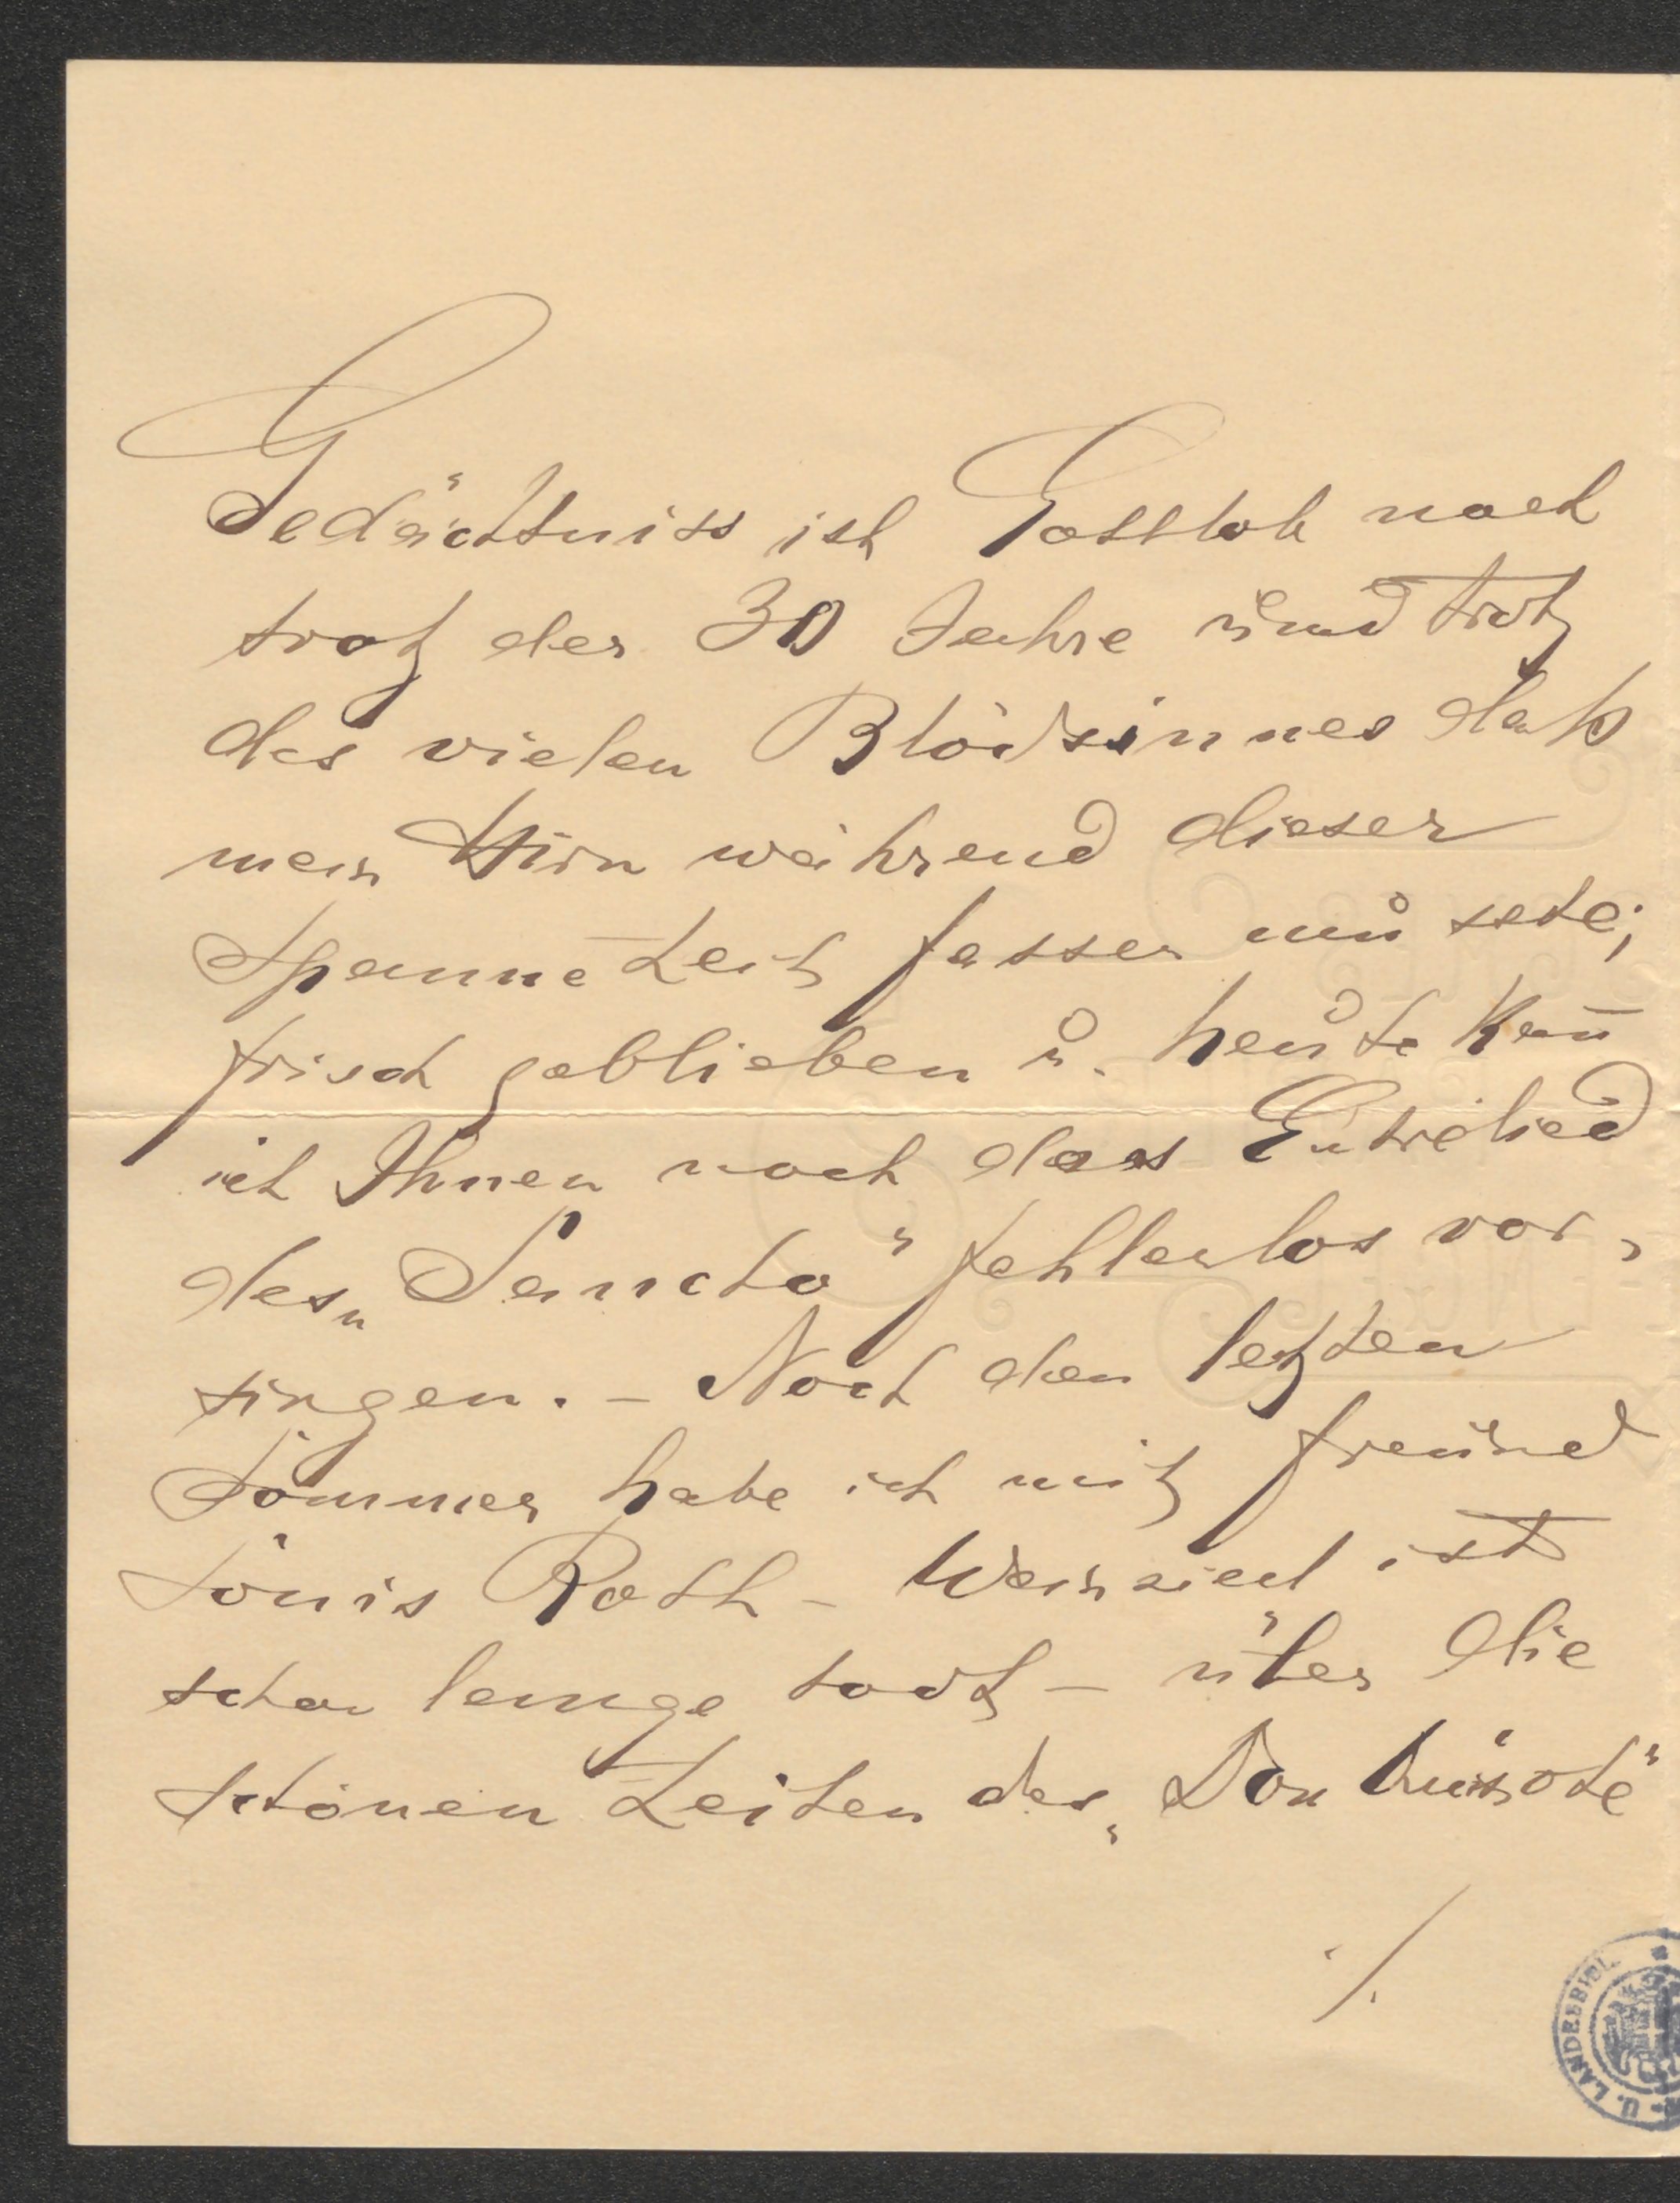 Gedächtniss ist Gottlob noch
trotz der 30 Jahre und trotz
des vielen Blödsinnes daß
mein Hirn während dieser
Spanne Zeit fassen mußte;
frisch geblieben u. heute kan̄
ich Ihnen noch das Entrélied
des „Sancho" fehlerlos vor-
singen. - Noch den letzten
Sommer habe ich mit Freund
Louis Roth - ist
schon lange todt - über die
schönen Zeiten des „Don Quixote"
./.
U. LANDESBIBL.